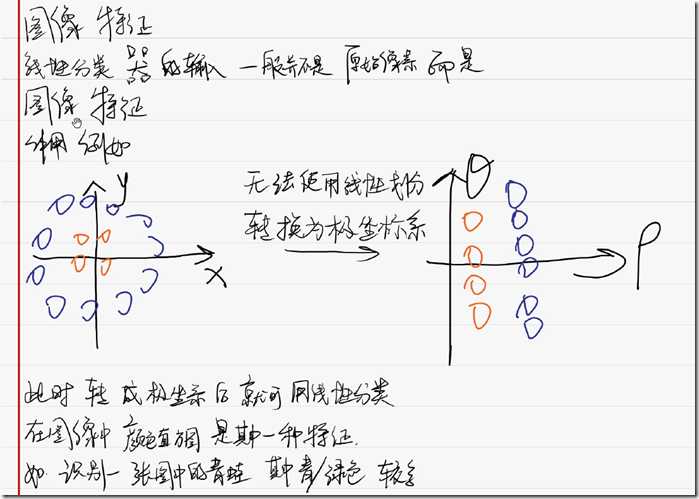 图像 特征
线性分类器的输入 一般并不是 原始像素 而是
图像 特征
作用 例如
y
x
无法使用线性划份
转换为极坐标系
θ
ρ
此时 转 成极坐示后 就可用线性分类
在图像中 颜色直方图 是其中一种特征.
如 识别一张图中的青蛙 其中青/绿色 较多